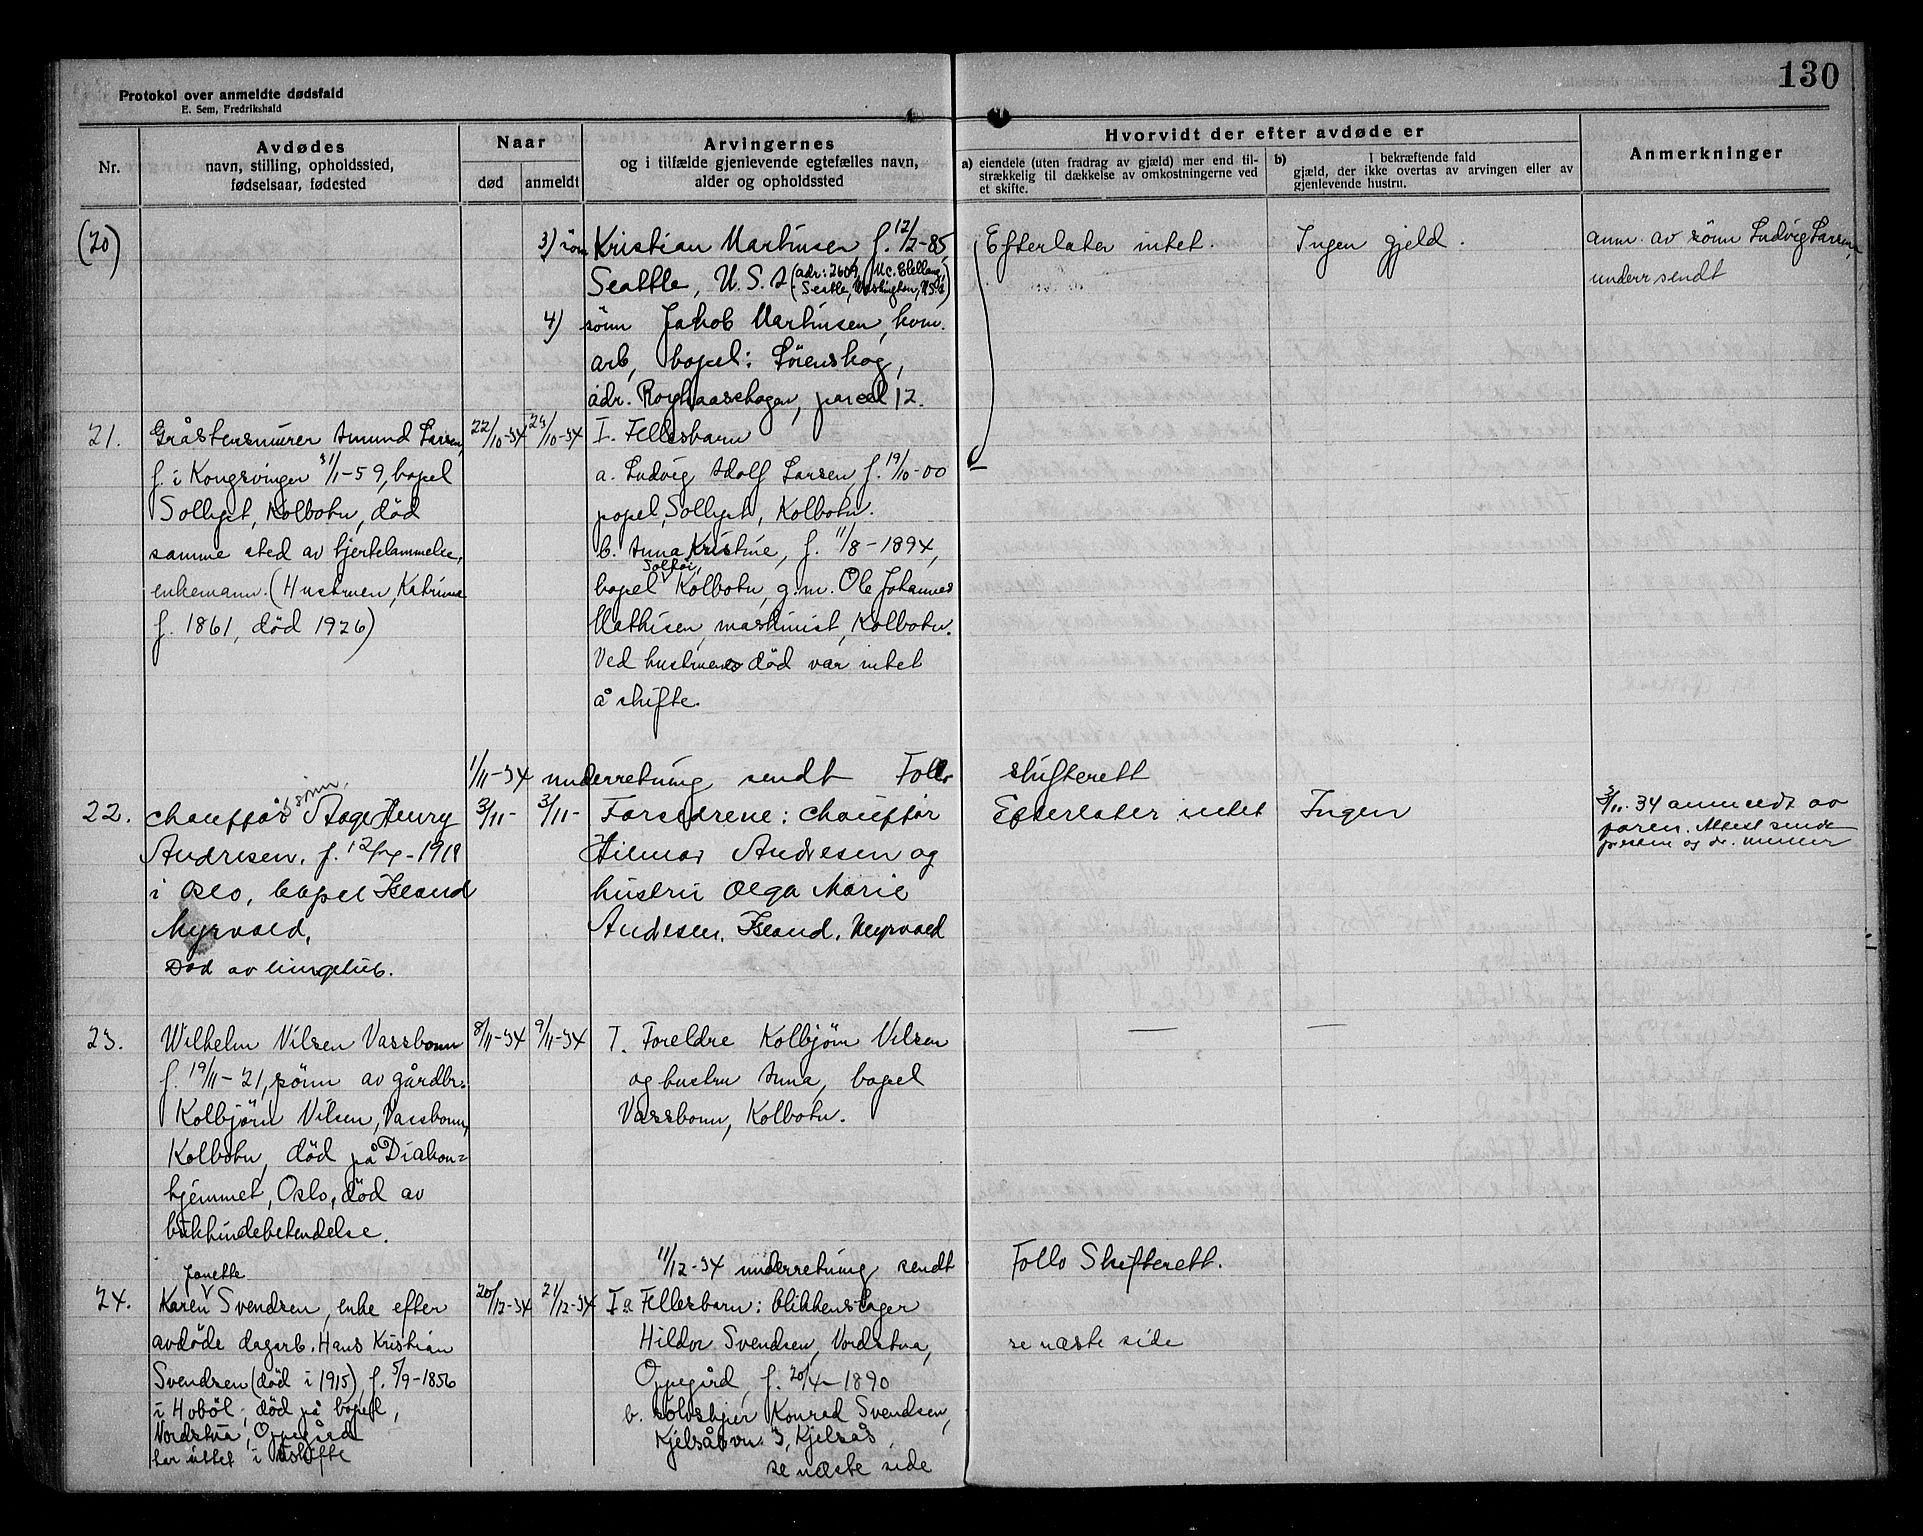 130
Protokol over anmeldte dødsfald
E. Sem, Fredrikshald
Nr.
Avdødes
navn, stilling, opholdssted,
fødselsaar, fødested
Naar
død
anmeldt
Arvingernes
og i tilfælde gjenlevende egtefælles navn,
alder og opholdssted
Hvorvidt der efter avdøde er
a) eiendele (uten fradrag av gjæld) mer end til-
strækkelig til dækkelse av omkostningerne ved
et skifte.
b) I bekræftende fald
gjæld, der ikke overtas av arvingen eller av
gjenlevende hustru.
Anmerkninger
(20)
3) sön Kristian Martinsen f. 12/2-85
Seattle, U.S.A (adr: 2609,
Seatle, Washington, U.S.A)
4) sönn Jakob Martinsen, kom.
arb, bopel: Lörenskog,
adr. Rorhaaschagen, parcel 12.
Efterlater intet.
Ingen gjeld.
anm. av sönn Ludvig Larsen,
underr. sendt
21.
Gråstensmurer Amund Larsen,
f. i Kongsvinger 31/1-59, bopel
Solbyet, Kolbotn, död
samme sted av hjertelammelse,
enkemann. (Hustruen, Katrina
f. 1861, död 1926)
22/10-34
23/10-34
I. Fellesbarn
a. Ludvig Adolf Larsen, f. 19/10-00
bopel, Solbyet, Kolbotn.
b. Anna Kristine, f. 11/8-1894,
bopel Kolbotn, g.m. Ole Johannes
Mathisen, maskinist, Kolbotn.
Ved hustruens död var intet
å skifte.
1/11-34 underretning sendt Follo skifterett
22.
chauffør sönn Aage Henry
Andresen. f. 12/7-1918
i Oslo, bopel Island
Myrvold.
Död av
3/11-
3/11-
Foreldrene: chauffør
Hilmar Andresen og
hustru Olga Marie
Andresen. Island. Myrvold
Efterlater intet
Ingen
3/11-34 anmeldt av
faren. Attest sendt
presten og dr.
23.
Wilhelm Nilsen Vassbonn
f. 19/11-21, sönn av gårdbr.
Kolbjörn Nilsen, Vassbonn,
Kolbotn, död på Diakon=
hjemmet, Oslo, död av
bukhindebetendelse.
8/11-34
9/11-34
I. Foreldre Kolbjörn Nilsen
og hustru Anna, bopel
Vassbonn, Kolbotn.
—
—
11/12-34 underretning sendt Follo Skifterett.
24.
Janette
Karen Svendsen, enke efter
avdöde dagarb. Hans Kristian
Svendsen (död i 1915), f. 5/9-1856
i Hobøl, död på bopel,
Nordstua, Oppegård
har sittet i uskifte
20/12-34
21/12-34
I a. Fellesbarn: blikkenslager
Hildor Svendsen, Nordstua,
Oppegård, f. 20/4-1890
b. Konrad Svendsen,
Kjelsåsvn. 3, Kjelsås,
se næste side
se næste side